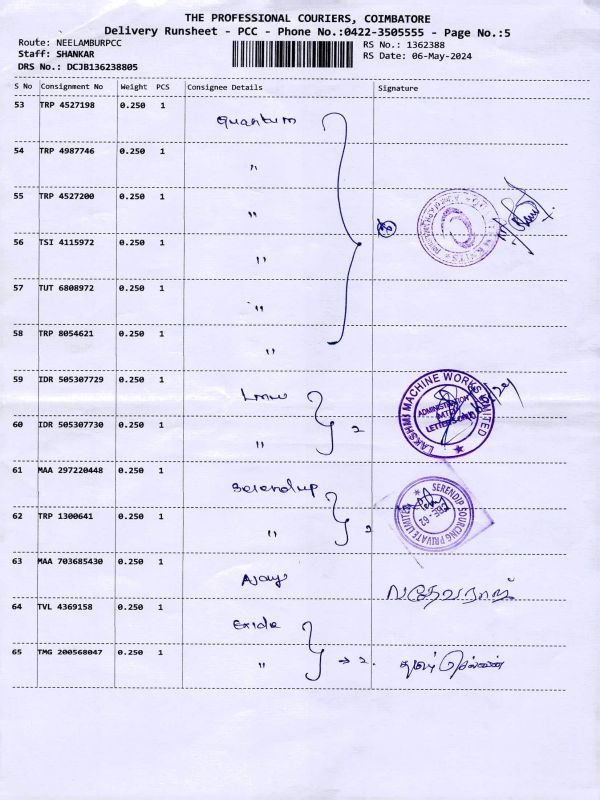 THE PROFESSIONAL COURIERS, COIMBATORE
Delivery Runsheet - PCC - Phone No.:0422-3505555 - Page No.:5
Route: NEELAMBURPCC
RS No.: 1362388
Staff: SHANKAR
RS Date: 06-May-2024
DRS No.: DCJB136238805
S No Consignment No Weight PCS Consignee Details Signature
53 TRP 4527198 0.250 1 Quantum
54 TRP 4987746 0.250 1 "
55 TRP 4527200 0.250 1 "
56 TSI 4115972 0.250 1 "
57 TUT 6808972 0.250 1 "
58 TRP 8054621 0.250 1 "
59 IDR 505307729 0.250 1 Lmw
LAKSHMI MACHINE WORKS LIMITED
ADMINISTRATION
LETTERS ONLY
60 IDR 505307730 0.250 1 " 2
61 MAA 297220448 0.250 1 Serendip
SERENDIP SOURCING PRIVATE LIMITED
CBE-62
62 TRP 1300641 0.250 1 " 2
63 MAA 703685430 0.250 1 Ajay
64 TVL 4369158 0.250 1 Exide
65 TMG 200568047 0.250 1 " → 2.